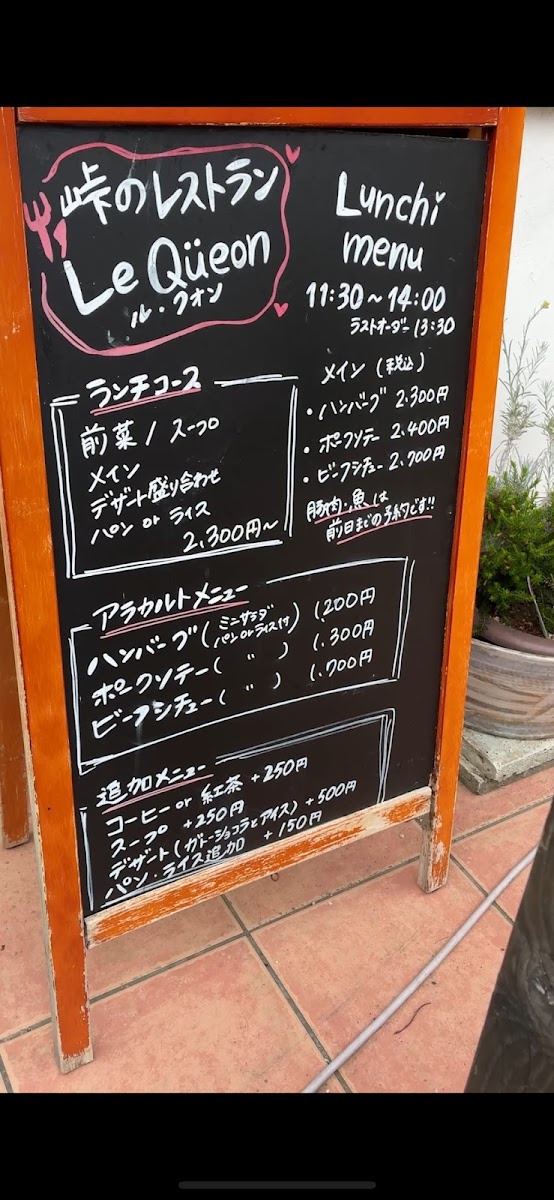 峠のレストラン
Le Qüeon
ル・クオン
Lunchi
menu
11:30~14:00
ラストオーダー 13:30
メイン (税込)
・ハンバーグ 2.300円
・ポークソテー 2.400円
・ビーフシチュー 2.700円
豚肉・魚は
前日までの予約です!!
ランチコース
前菜 / スープ
メイン
デザート盛り合わせ
パン or ライス
2,300円~
アラカルトメニュー
ハンバーグ (ミニサラダ パン or ライス付) 1,200円
ポークソテー ( 〃 ) 1,300円
ビーフシチュー ( 〃 ) 1,700円
追加メニュー
コーヒー or 紅茶 +250円
スープ +250円
デザート (ガトーショコラとアイス) +500円
パン・ライス追加 +150円